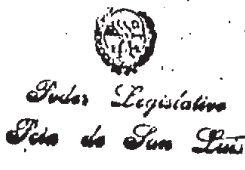 Poder Legislativo
Pcia de San Luis